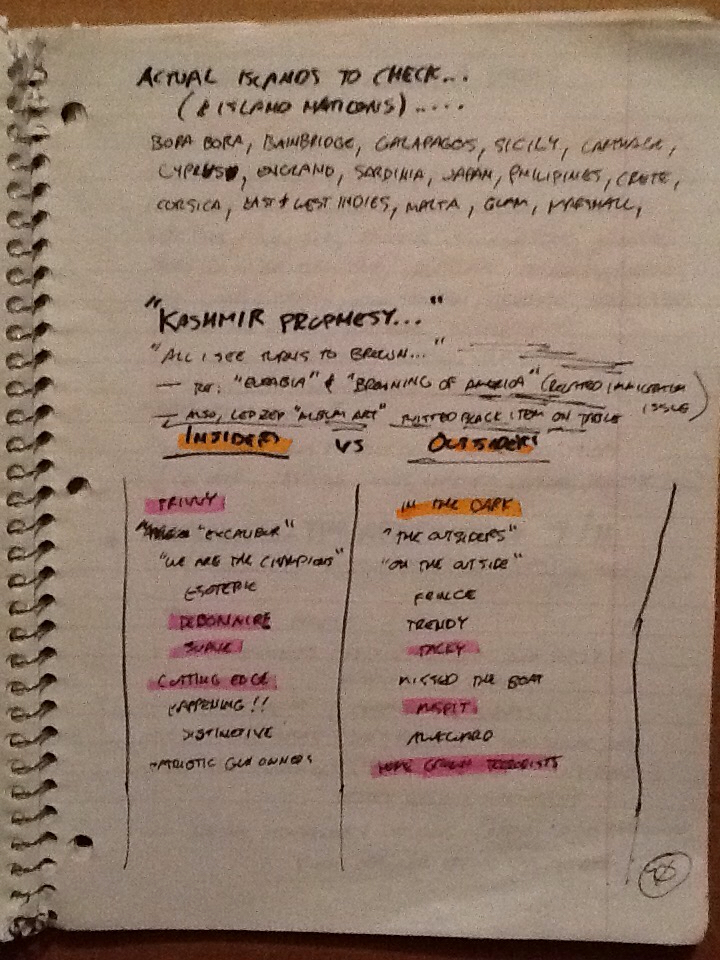 ACTUAL ISLANDS TO CHECK...
(& ISLAND NATIONS).....
BORA BORA, BAINBRIDGE, GALAPAGOS, SICILY, CARTHAGE,
CYPRUS, ENGLAND, SARDINIA, JAPAN, PHILIPINES, CRETE,
CORSICA, EAST & WEST INDIES, MALTA, GUAM, MARSHALL,
"KASHMIR PROPHESY..."
"ALL I SEE TURNS TO BROWN..."
— RE: "EURABIA" & "BROWNING OF AMERICA" (RELATED IMMIGRATION ISSUE)
— ALSO, LED ZEP "ALBUM ART" TWISTED BLACK ITEM ON TABLE
INSIDERS VS OUTSIDERS
PRIVVY IN THE DARK
"EXCALIBUR" "THE OUTSIDERS"
"WE ARE THE CHAMPIONS" "ON THE OUTSIDE"
ESOTERIC FRINGE
DEBONNAIRE TRENDY
SUAVE TACKY
CUTTING EDGE MISSED THE BOAT
HAPPENING!! MISFIT
DISTINCTIVE AWKWARD
PATRIOTIC GUN OWNERS HOME GROWN TERRORISTS